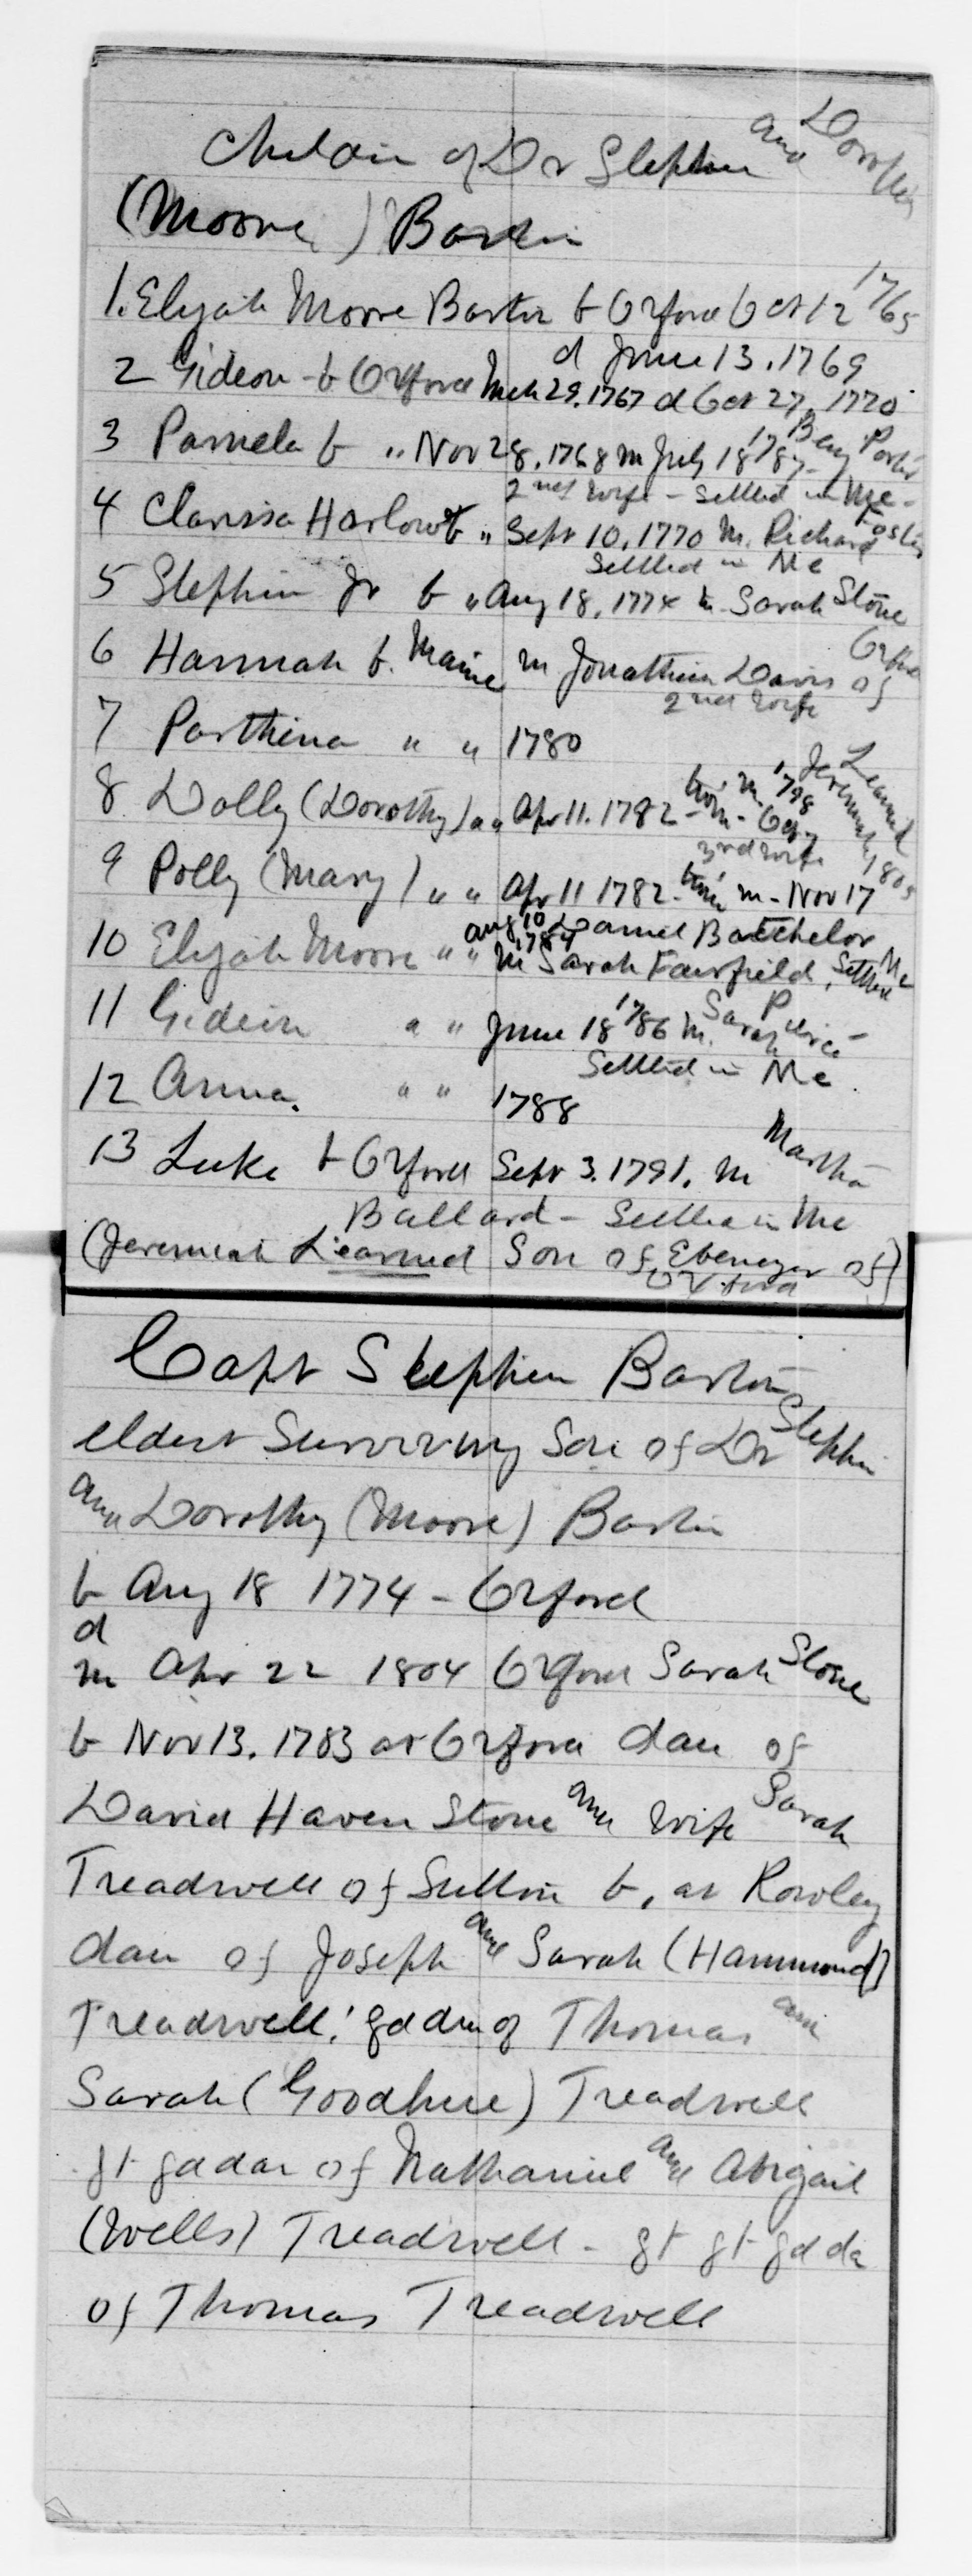 Children of Dr Stephen and Dorothy
(Moore) Barton
1. Elijah Moore Barton b Oxford Oct 12 1765
d June 13. 1769
2 Gideon - b Oxford Mch 29. 1767 d Oct 27, 1770
3 Pamela b " Nov 28, 1768 m July 18 1787 - Benj Porter
2nd wife - Settled in Me -
4 Clarissa Harlow b " Sept 10, 1770 m. Richard Foster
Settled in Me
5 Stephen Jr b " Aug 18, 1774 m Sarah Stone
6 Hannah b. Maine m Jonathan Davis of Oxford
2nd wife
7 Parthena " " 1780
8 Dolly (Dorothy) " " Apr 11. 1782 - twin - m 1798 Jeremiah Learned
3rd wife
9 Polly (Mary) " " Apr 11 1782 - twin m - Nov 17 1805
Daniel Batchelor
10 Elijah Moore " " Aug 10 1784 m Sarah Fairfield, Settled Me
11 Gideon " " June 18 1786 m. Sarah Pierce -
Settled in Me.
12 Anna. " " 1788
13 Luke b Oxford Sept 3. 1791. m Martha
Ballard - Settled in Me
(Jeremiah Learned Son of Ebenezer of)
Oxford
Capt Stephen Barton
eldest Surviving Son of Dr Stephen
and Dorothy (Moore) Barton
b Aug 18 1774 - Oxford
d
m Apr 22 1804 Oxford Sarah Stone
b Nov 13. 1783 at Oxford dau of
David Haven Stone and Wife Sarah
Treadwell of Sutton b, at Rowley
dau of Joseph and Sarah (Hammond)
Treadwell! gd dau of Thomas and
Sarah (Goodhue) Treadwell
gt gd dau of Nathaniel and Abigail
(Wells) Treadwell - gt gt gd da
of Thomas Treadwell